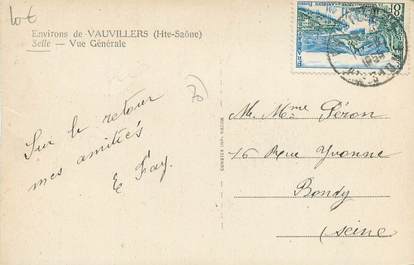 Environs de VAUVILLERS (Hte-Saône)
Selle — Vue Générale
Sur le retour
mes amitiés
E Fay.
M. Mme Péron
16 Rue Yvonne
Bondy
Seine